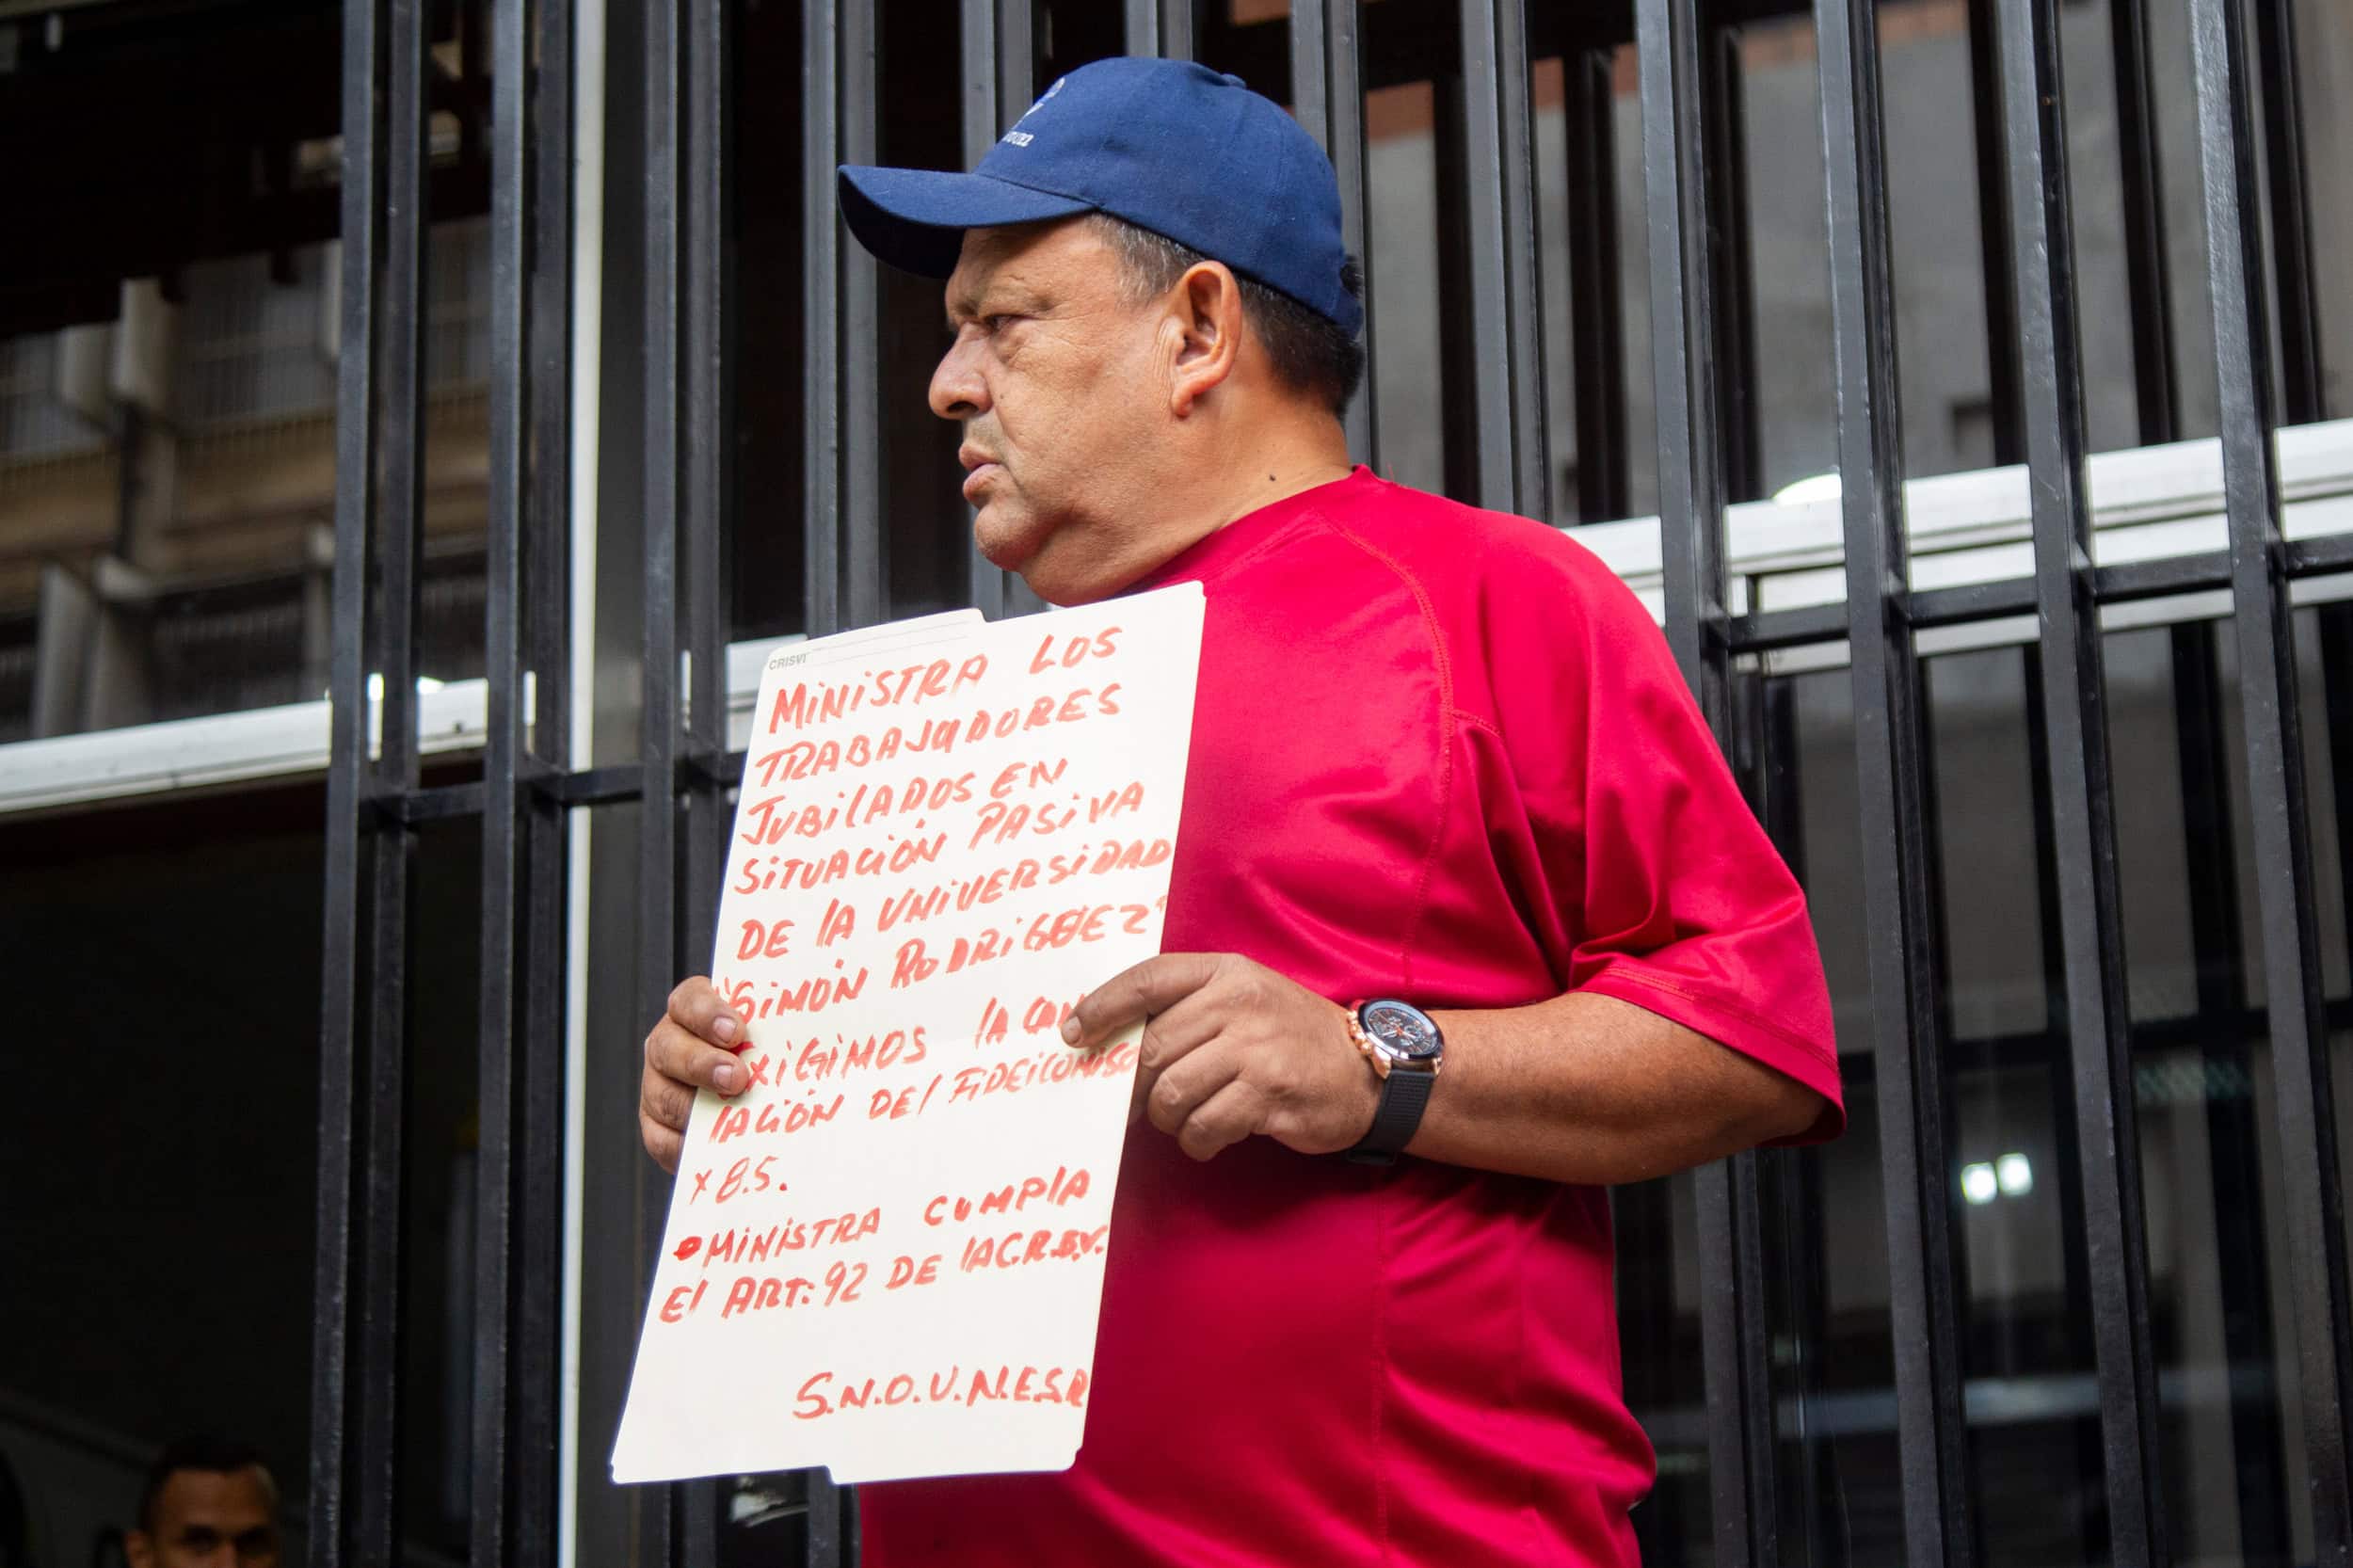 CRISVI
MINISTRA LOS
TRABAJADORES
JUBILADOS EN
SITUACIÓN PASIVA
DE LA UNIVERSIDAD
"SIMÓN RODRIGUEZ"
EXIGIMOS LA CAN
LACIÓN DEL FIDEICOMISO
X 8.5.
MINISTRA CUMPLA
EL ART: 92 DE LA C.R.B.V.
S.N.O.U.N.E.S.R